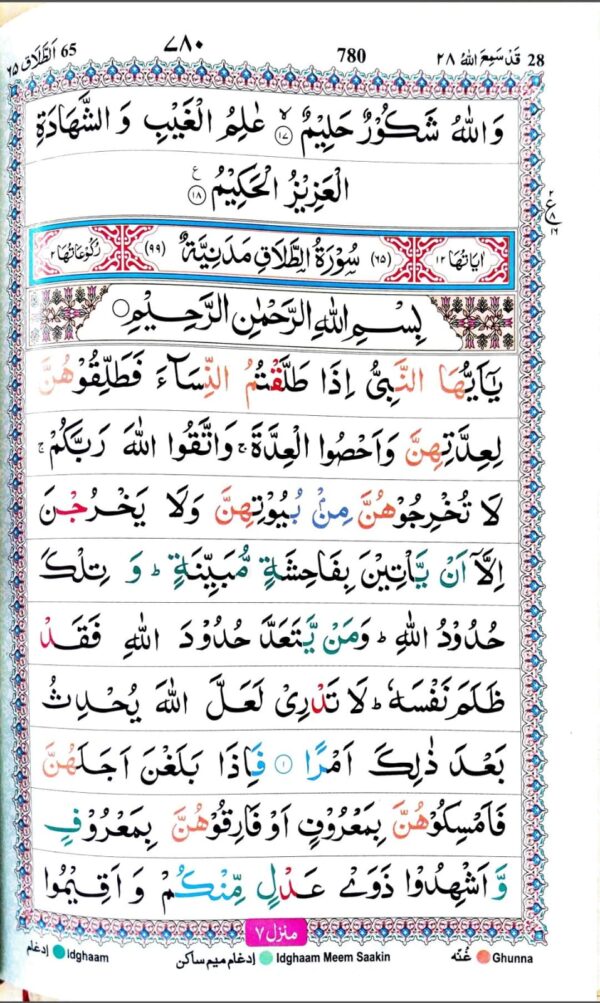 28 قَدْ سَمِعَ اللهُ ٢٨ 780 ٧٨٠ اَلطَّلَاق 65 ٦٥
وَاللّٰهُ شَكُوْرٌ حَلِيْمٌ ۙ﴿۱۷﴾ عٰلِمُ الْغَيْبِ وَ الشَّهَادَةِ
الْعَزِيْزُ الْحَكِيْمُ ﴿۱۸﴾ ع
٢ ع ٨ ١٦
اٰيَاتُهَا ١٢ (٦٥) سُوْرَةُ الطَّلَاقِ مَدَنِيَّةٌ (٩٩) رُكُوْعَاتُهَا ٢
بِسْمِ اللّٰهِ الرَّحْمٰنِ الرَّحِيْمِ
يٰۤاَيُّهَا النَّبِيُّ اِذَا طَلَّقْتُمُ النِّسَآءَ فَطَلِّقُوْهُنَّ
لِعِدَّتِهِنَّ وَاَحْصُوا الْعِدَّةَ ۚ وَاتَّقُوا اللّٰهَ رَبَّكُمْ ۚ
لَا تُخْرِجُوْهُنَّ مِنْۢ بُيُوْتِهِنَّ وَلَا يَخْرُجْنَ
اِلَّاۤ اَنْ يَّاْتِيْنَ بِفَاحِشَةٍ مُّبَيِّنَةٍ ؕ وَ تِلْكَ
حُدُوْدُ اللّٰهِ ؕ وَمَنْ يَّتَعَدَّ حُدُوْدَ اللّٰهِ فَقَدْ
ظَلَمَ نَفْسَهٗ ؕ لَا تَدْرِيْ لَعَلَّ اللّٰهَ يُحْدِثُ
بَعْدَ ذٰلِكَ اَمْرًا ﴿۱﴾ فَاِذَا بَلَغْنَ اَجَلَهُنَّ
فَاَمْسِكُوْهُنَّ بِمَعْرُوْفٍ اَوْ فَارِقُوْهُنَّ بِمَعْرُوْفٍ
وَّ اَشْهِدُوْا ذَوَيْ عَدْلٍ مِّنْكُمْ وَ اَقِيْمُوا
منزل ٧
غُنّه Ghunna إدغام ميم ساكن Idghaam Meem Saakin إدغام Idghaam